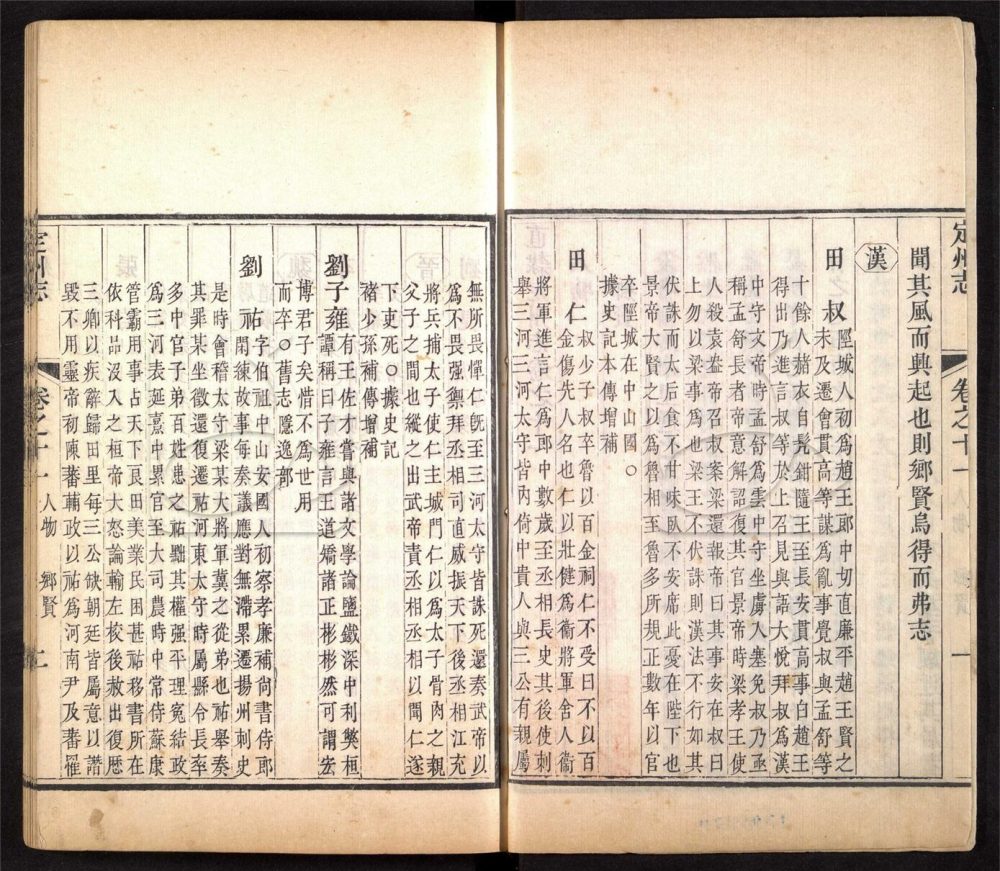 定州志
卷之十一
一
聞其風而興起也則鄉賢烏得而弗志
漢
田叔陘城人初爲趙王郎中切直廉平趙王賢之
未及遷會貫高等謀爲亂事覺叔與孟舒等
十餘人赭衣自髠鉗隨王至長安貫高事白趙王
得出乃進言叔等於上召見與語大悅拜叔爲漢
中守文帝時孟舒爲雲中守坐虜人塞免叔乃亟
稱孟舒長者帝意解詔復其官景帝時梁孝王使
人殺袁盎帝召叔案梁還報帝曰其事安在叔曰
上勿以梁事爲也梁王不伏誅則漢法不行如其
伏誅而太后食不甘味臥不安席此憂在陛下也
景帝大賢之以爲魯相至魯多所規正數年以官
卒陘城在中山國○
據史記本傳增補
田仁叔少子叔卒魯以百金祠仁不受曰不以百
金傷先人名也仁以壯健爲衛將軍舍人衛
將軍進言仁爲郎中數歲至丞相長史其後使刺
舉三河三河太守皆內倚中貴人與三公有親屬
無所畏憚仁旣至三河太守皆誅死還奏武帝以
爲不畏强禦拜丞相司直威振天下後丞相江充
將兵捕太子使仁主城門仁以爲太子骨肉之親
父子之間也縱之出武帝責丞相丞相以聞仁遂
下吏死○據史記
褚少孫補傳增補
劉子雍有王佐才嘗與諸文學論鹽鐵深中利獘桓
譚稱曰子雍言王道矯諸正彬彬然可謂宏
博君子矣惜不爲世用
而卒○舊志隱逸部
劉祐字伯祖中山安國人初察孝廉補尚書侍郎
閑練故事每奏議應對無滯累遷揚州刺史
是時會稽太守梁某大將軍冀之從弟也祐舉奏
其罪某坐徵還復遷祐河東太守時屬縣令長率
多中官子弟百姓患之祐黜其權强平理冤結政
爲三河表延熹中累官至大司農時中常侍蘇康
管霸用事占天下良田美業民困甚祐移書所在
依科品沒入之桓帝大怒論輸左校後赦出復歷
三卿以疾辭歸田里每三公缺朝廷皆屬意以譖
毀不用靈帝初陳蕃輔政以祐爲河南尹及蕃罹
定州志
卷之十一
人物
鄉賢
二